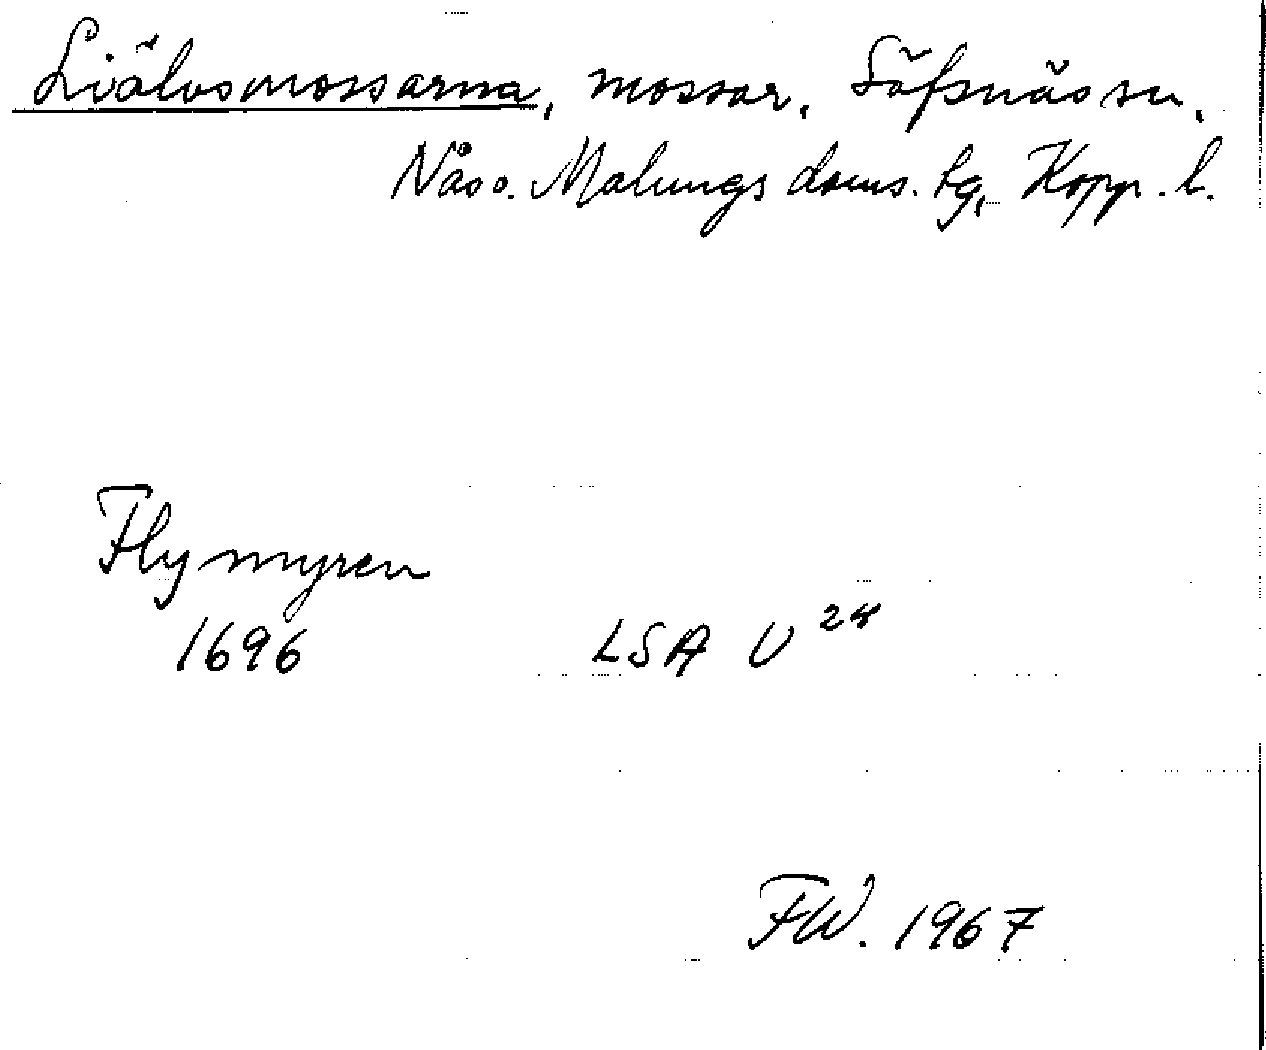 Liälvsmossarna, mossar, Säfsnäs sn,
Nås o. Malungs doms. tg, Kopp. l.
Fly myren
1696 LSA U 24
FW. 1967